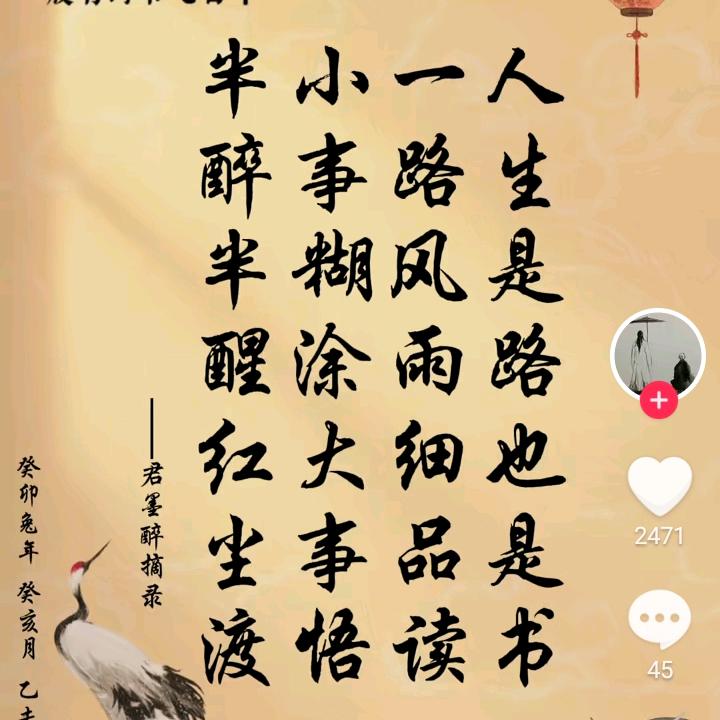 人生是路也是书
一路风雨细品读
小事糊涂大事悟
半醉半醒红尘渡
——君墨醉摘录
癸卯兔年 癸亥月 乙
2471
45